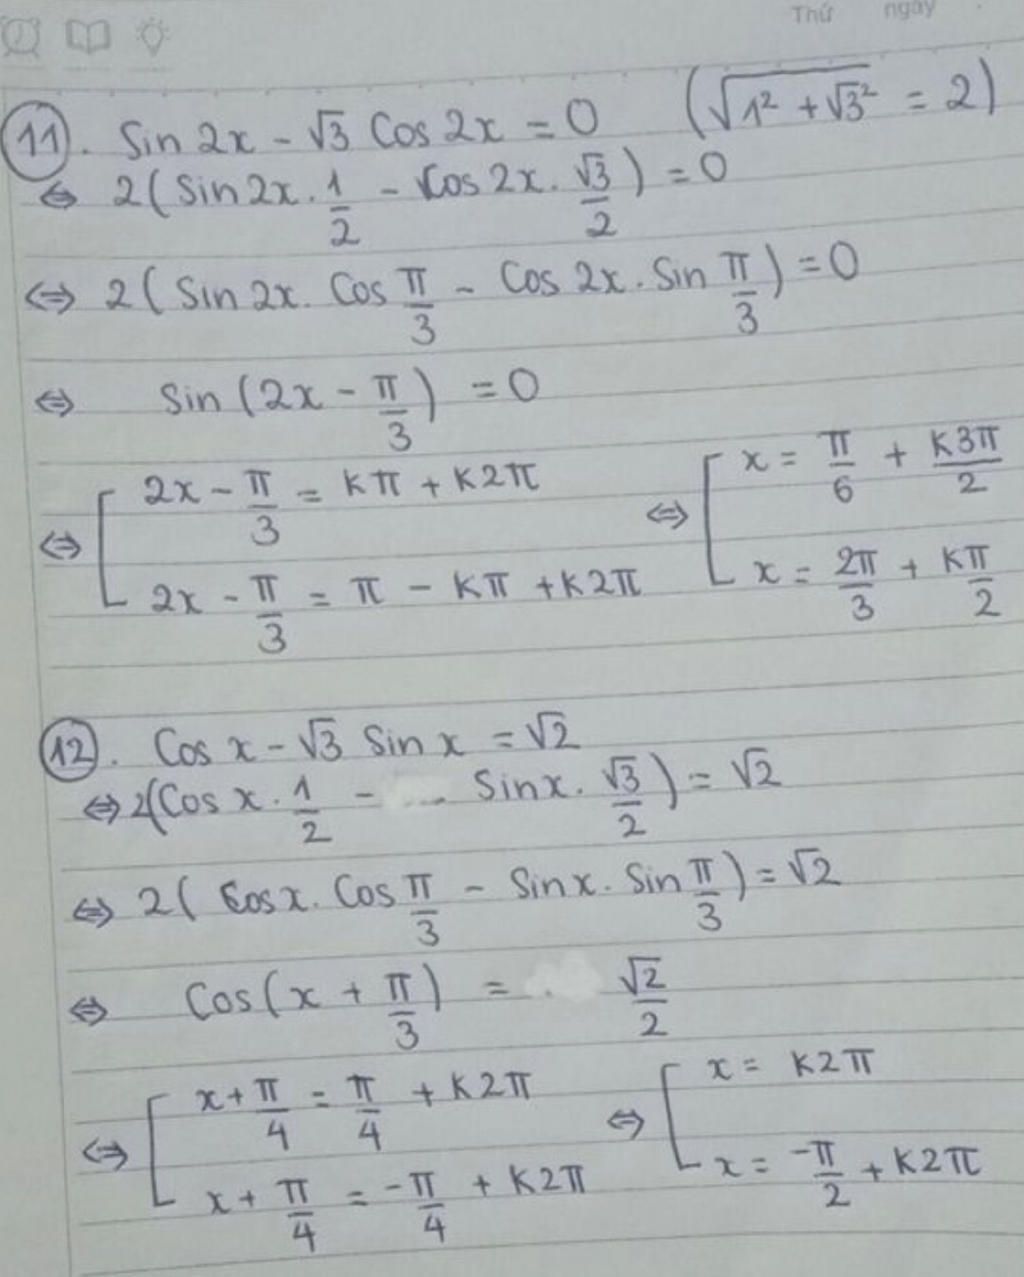 Thứ ngày
11. Sin 2x - √3 Cos 2x = 0 (√(1² + √3²) = 2)
⇔ 2(Sin 2x . 1/2 - Cos 2x . √3/2) = 0
⇔ 2(Sin 2x . Cos π/3 - Cos 2x . Sin π/3) = 0
⇔ Sin (2x - π/3) = 0
⇔ [ 2x - π/3 = kπ + k2π ⇔ [ x = π/6 + k3π/2
2x - π/3 = π - kπ + k2π x = 2π/3 + kπ/2
12. Cos x - √3 Sin x = √2
⇔ 2(Cos x . 1/2 - Sin x . √3/2) = √2
⇔ 2(Cos x . Cos π/3 - Sin x . Sin π/3) = √2
⇔ Cos(x + π/3) = √2/2
⇔ [ x + π/4 = π/4 + k2π ⇔ [ x = k2π
x + π/4 = -π/4 + k2π x = -π/2 + k2π